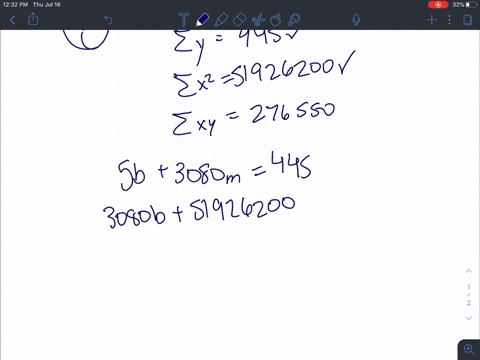 12:32 PM Thu Jul 16
32%
Σy = 445✓
Σx² = 51926200✓
Σxy = 276550
5b + 3080m = 445
3080b + 51926200
1/2